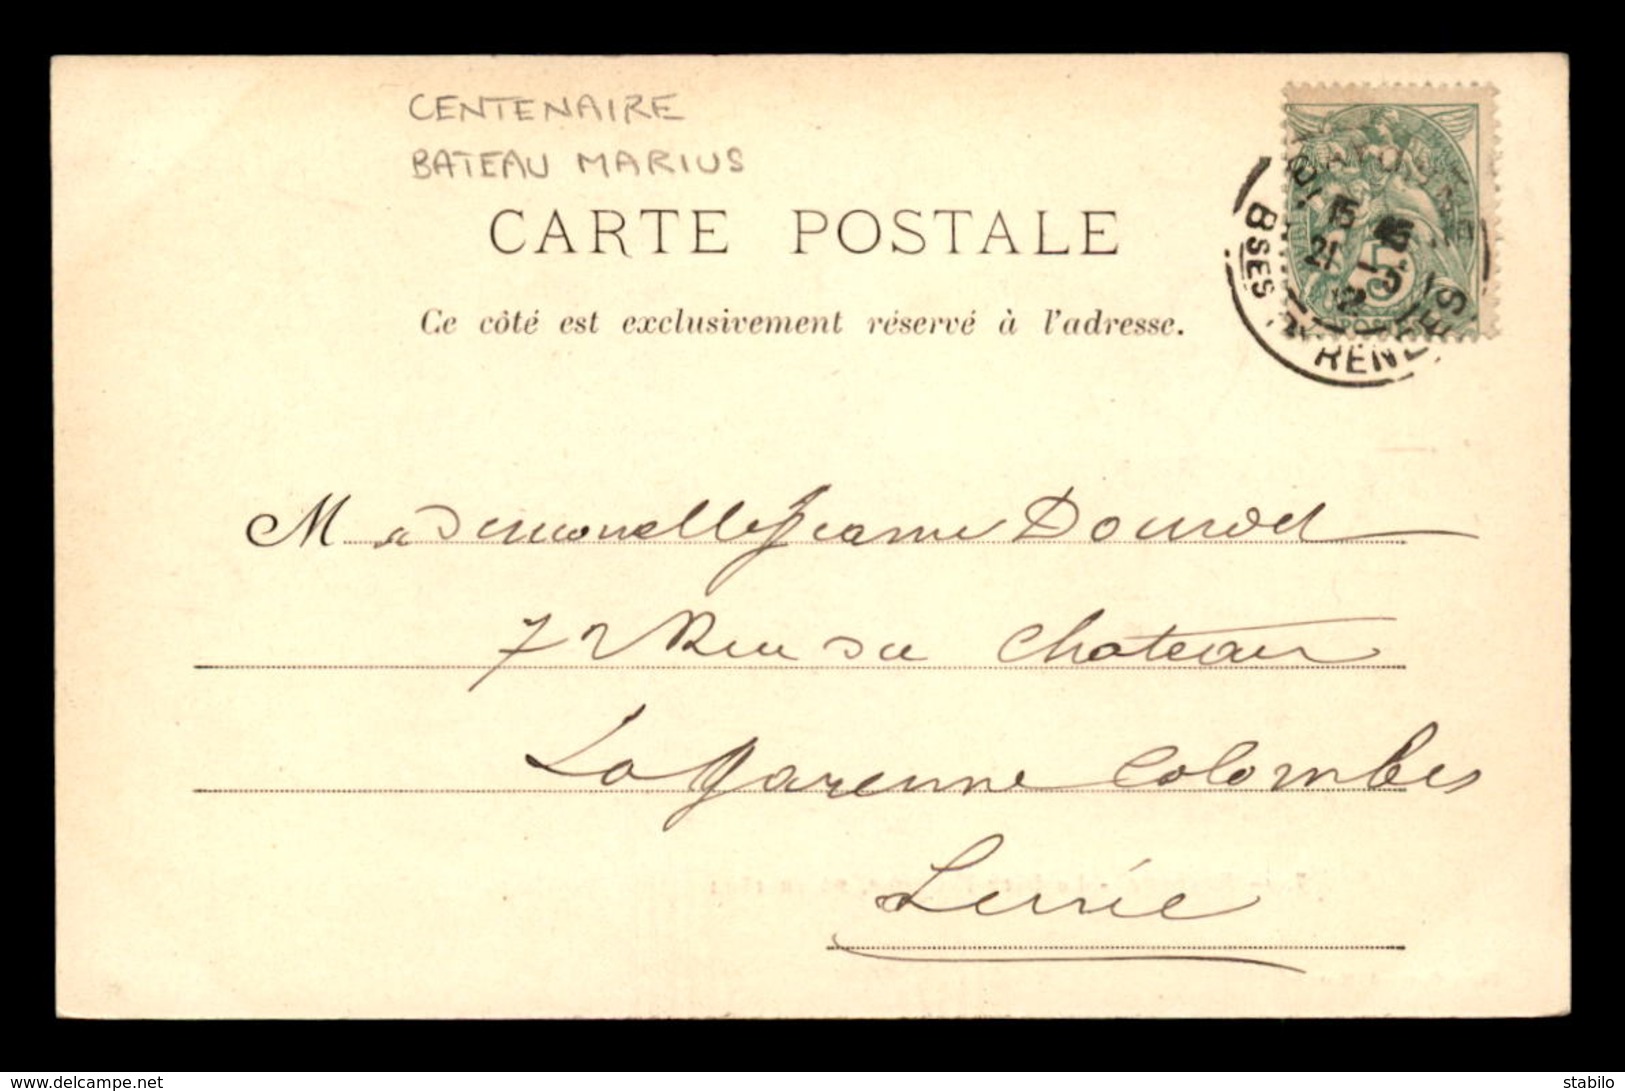 CENTENAIRE
BATEAU MARIUS
CARTE POSTALE
Ce côté est exclusivement réservé à l'adresse.
Mademoiselle Jeanne
72 Rue du Chateau
La Garenne Colombes
Seine
BAYONNE
15
21
5
BSES PYRENEES
www.delcampe.net
stabilo